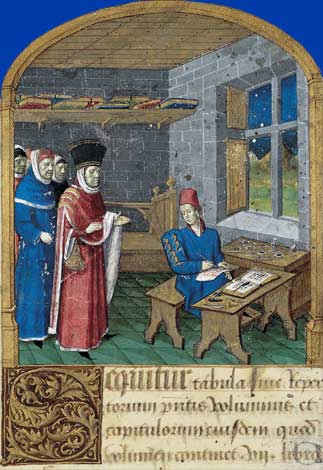 Sequitur tabula siue reper
torium pntis voluminis et
capitulorum eiusdem quod
volumen continet vii libro